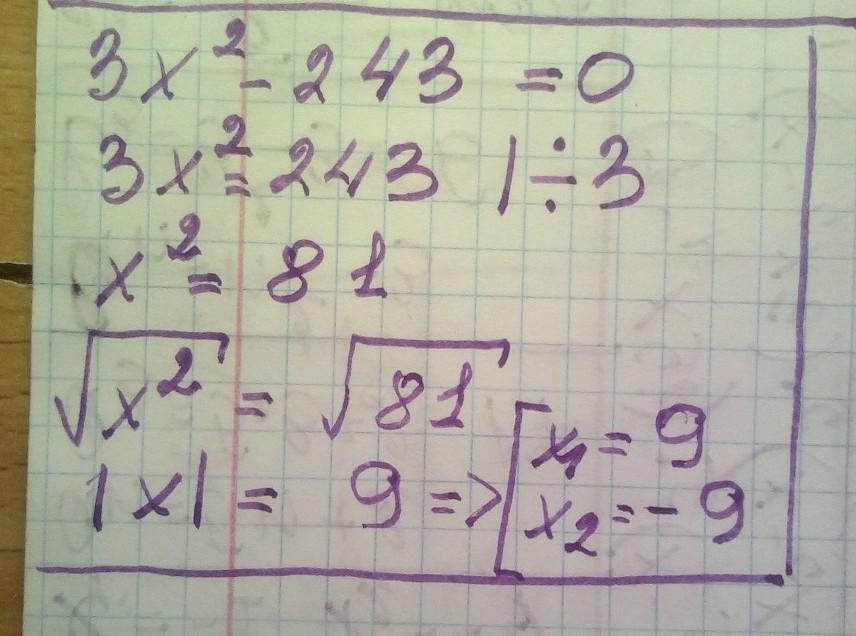 3x² - 243 = 0
3x² = 243 | ÷ 3
x² = 81
√x² = √81
|x| = 9 => [ x₁ = 9
x₂ = - 9